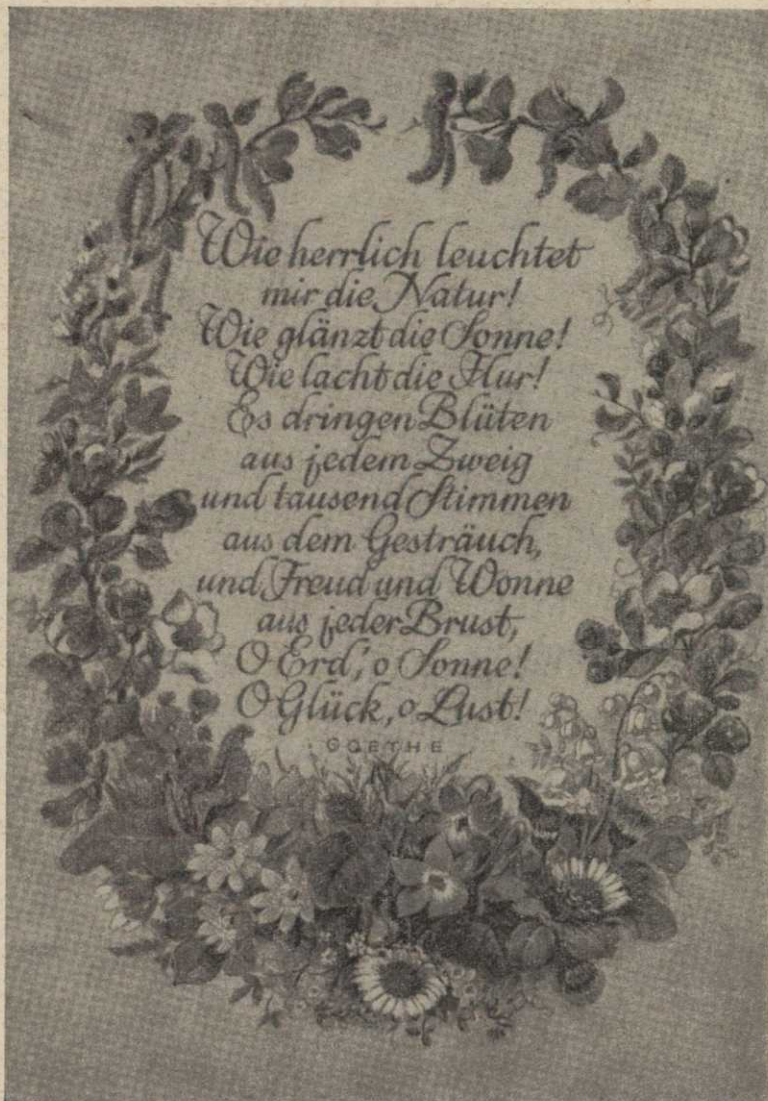 Wie herrlich leuchtet
mir die Natur!
Wie glänzt die Sonne!
Wie lacht die Flur!
Es dringen Blüten
aus jedem Zweig
und tausend Stimmen
aus dem Gesträuch,
und Freud und Wonne
aus jeder Brust,
O Erd', o Sonne!
O Glück, o Lust!
GOETHE